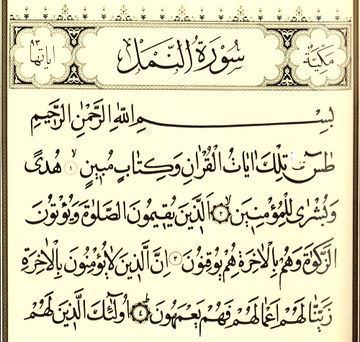 مكية سورة النمل آياتها ٩٣
بسم الله الرحمن الرحيم
طس تلك ايات القران وكتاب مبين ١ هدى
وبشرى للمؤمنين ٢ الذين يقيمون الصلوة ويؤتون
الزكوة وهم بالاخرة هم يوقنون ٣ ان الذين لا يؤمنون بالاخرة
زينا لهم اعمالهم فهم يعمهون ٤ اولئك الذين لهم